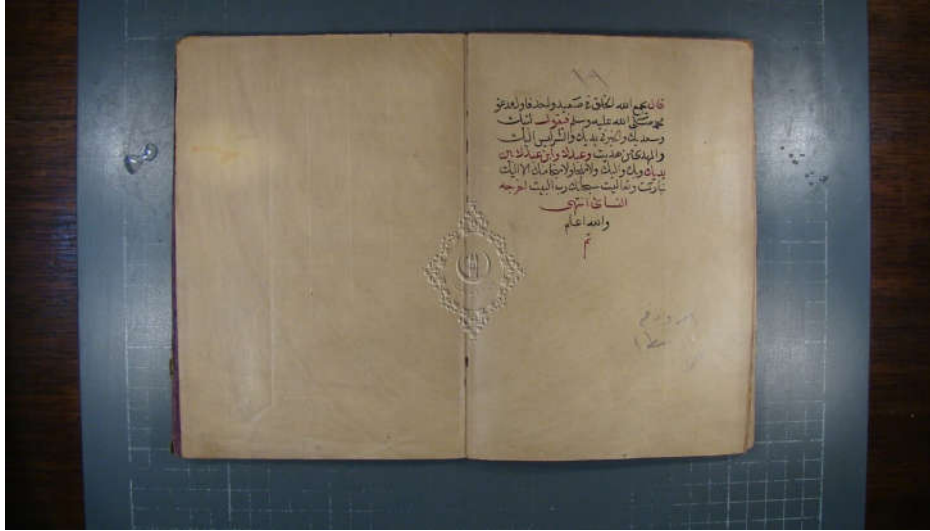 ١٩
قال يجمع الله الخلق في صعيد واحد فاول مدعو
محمد صلى الله عليه وسلم فيقول لبيك
وسعديك والخير في يديك والشر ليس اليك
والمهدي من هديت وعبدك وابن عبدك بين
يديك وبك واليك ولا ملجأ ولا منجا منك الا اليك
تباركت وتعاليت سبحانك رب البيت اخرجه
النسائي انتهى
والله اعلم
تم